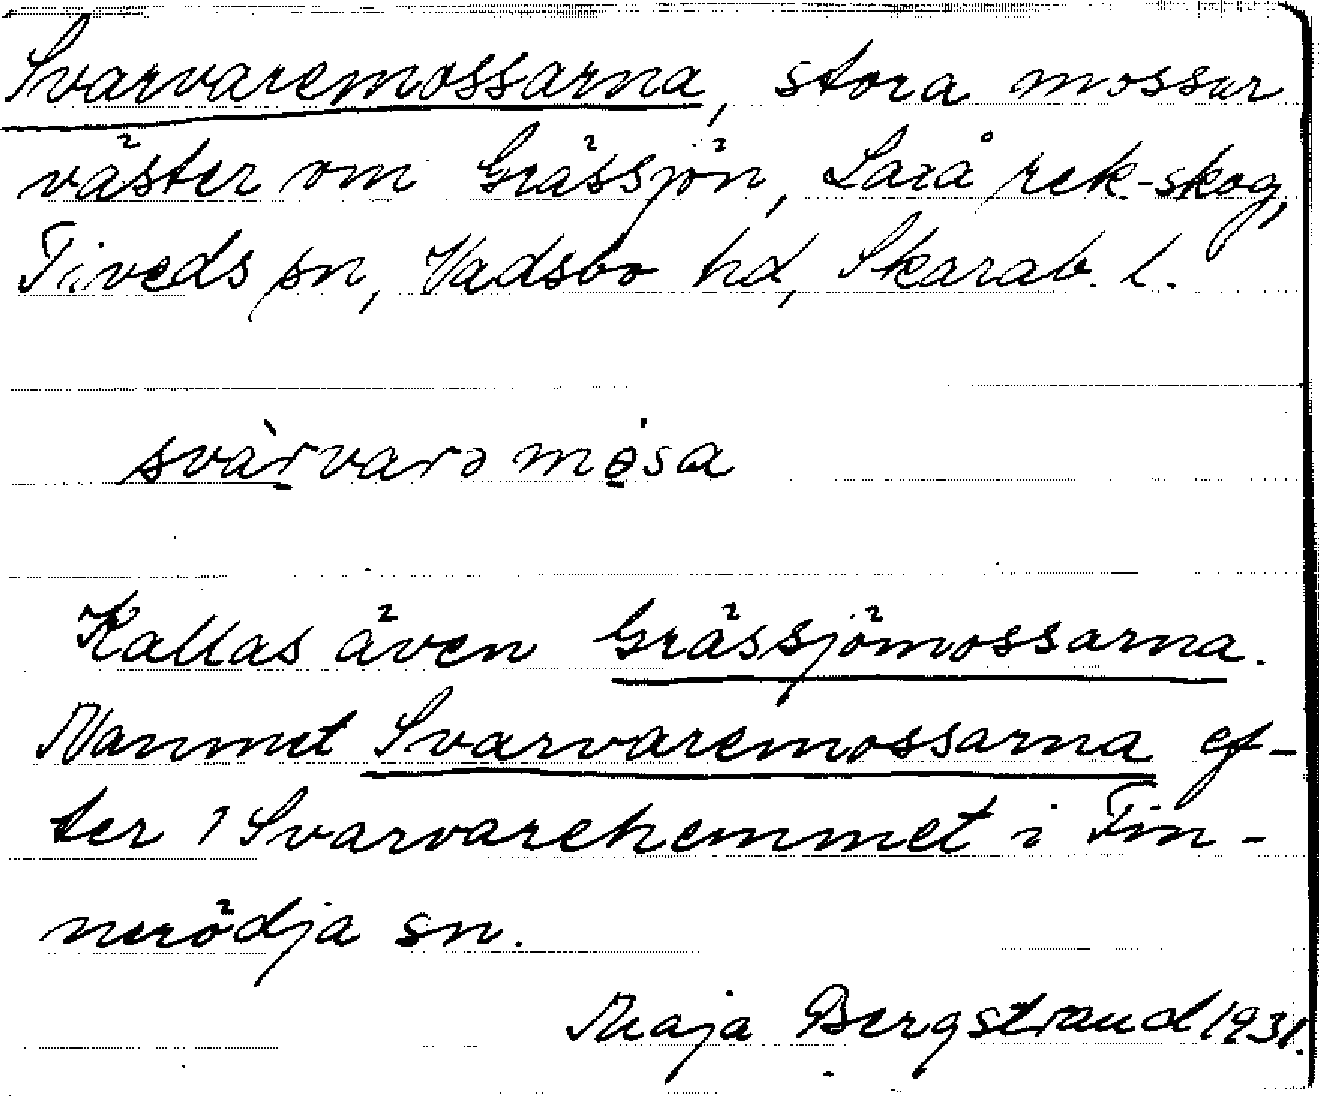 Svarvaremossarna, stora mossar
väster om Grässjön, Laxå rek-skog,
Tiveds sn, Vadsbo hd, Skarab. l.
svàrvarə mósa
Kallas även Grässjömossarna.
Namnet Svarvaremossarna ef-
ter 1 Svarvarehemmet i Fin-
nerödja sn.
Maja Bergstrand 1931.